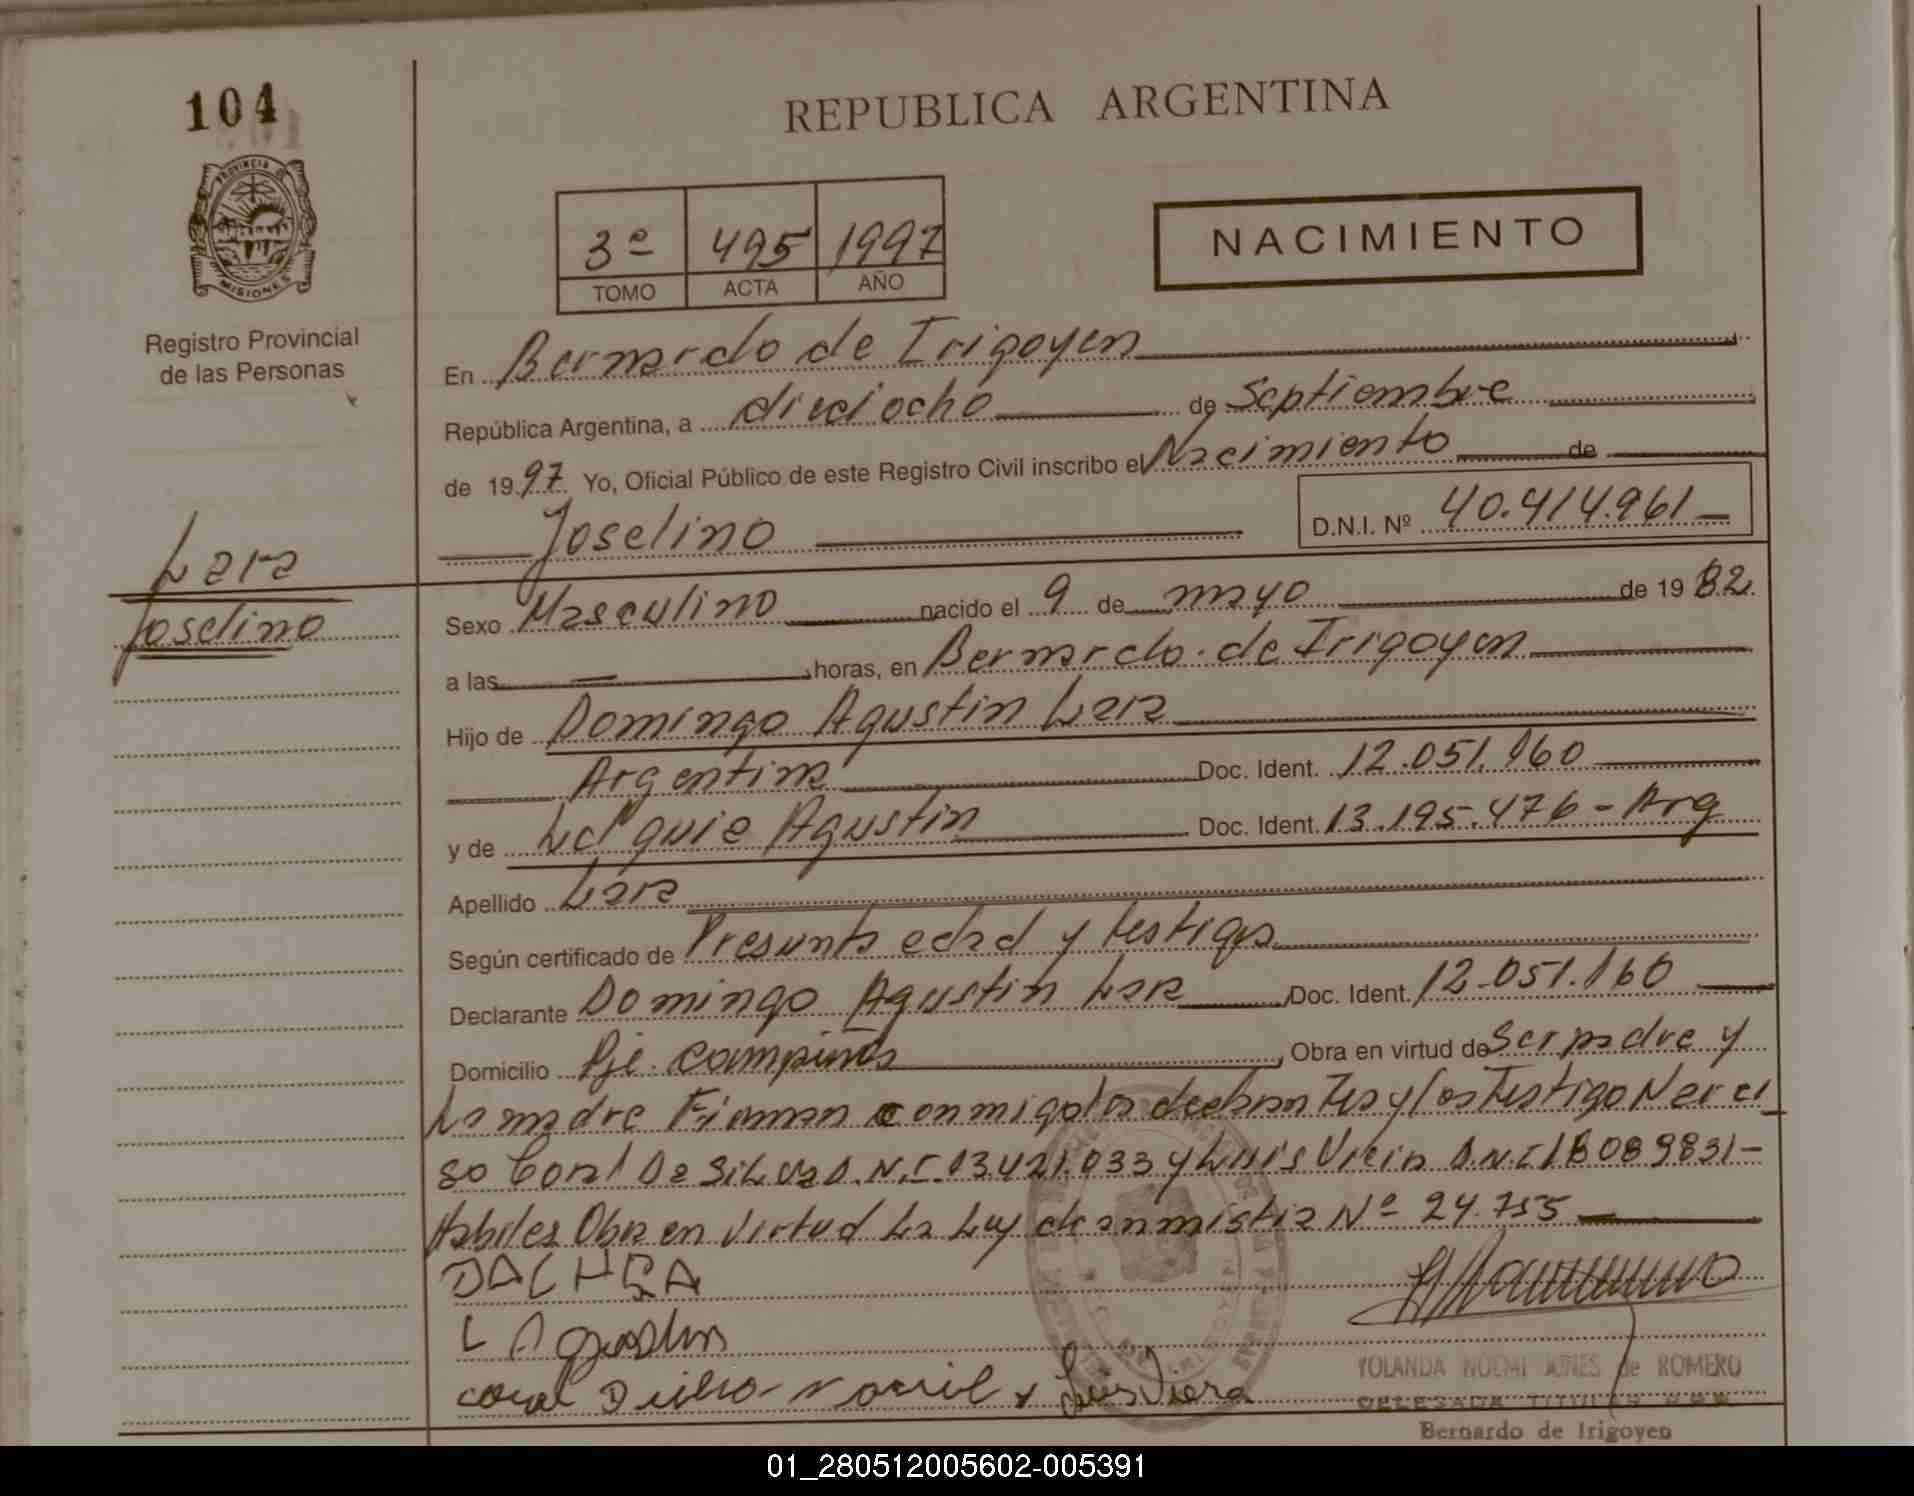 104
REPUBLICA ARGENTINA
PROVINCIA DE MISIONES
3º 495 1997
TOMO ACTA AÑO
NACIMIENTO
Registro Provincial
de las Personas
En Bernardo de Irigoyen
República Argentina, a dieciocho de Septiembre
de 1997 Yo, Oficial Público de este Registro Civil inscribo el Nacimiento de
Joselino D.N.I. Nº 40.414.961
Lara
Joselino
Sexo Masculino nacido el 9 de mayo de 1982
a las horas, en Bernardo de Irigoyen
Hijo de Domingo Agustin Lara
Argentina Doc. Ident. 12.051.160
y de Agustin Doc. Ident. 13.195.476 - Arg
Apellido Lara
Según certificado de Presunta edad y testigos
Declarante Domingo Agustin Lara Doc. Ident. 12.051.160
Domicilio Pje. campinas, Obra en virtud de Ser padre y
La madre Firman conmigo los declarantes y los Testigo Narci
so Coral Da Silva D.N.I. 13.421.033 y Luis Vieira D.N.I 18089831-
Habiles Obra en Virtud La Ley de anmistia Nº 24.755
L Agustin
Luis Viera
YOLANDA NOEMI de ROMERO
DELEGADA TITULAR
Bernardo de Irigoyen
01_280512005602-005391